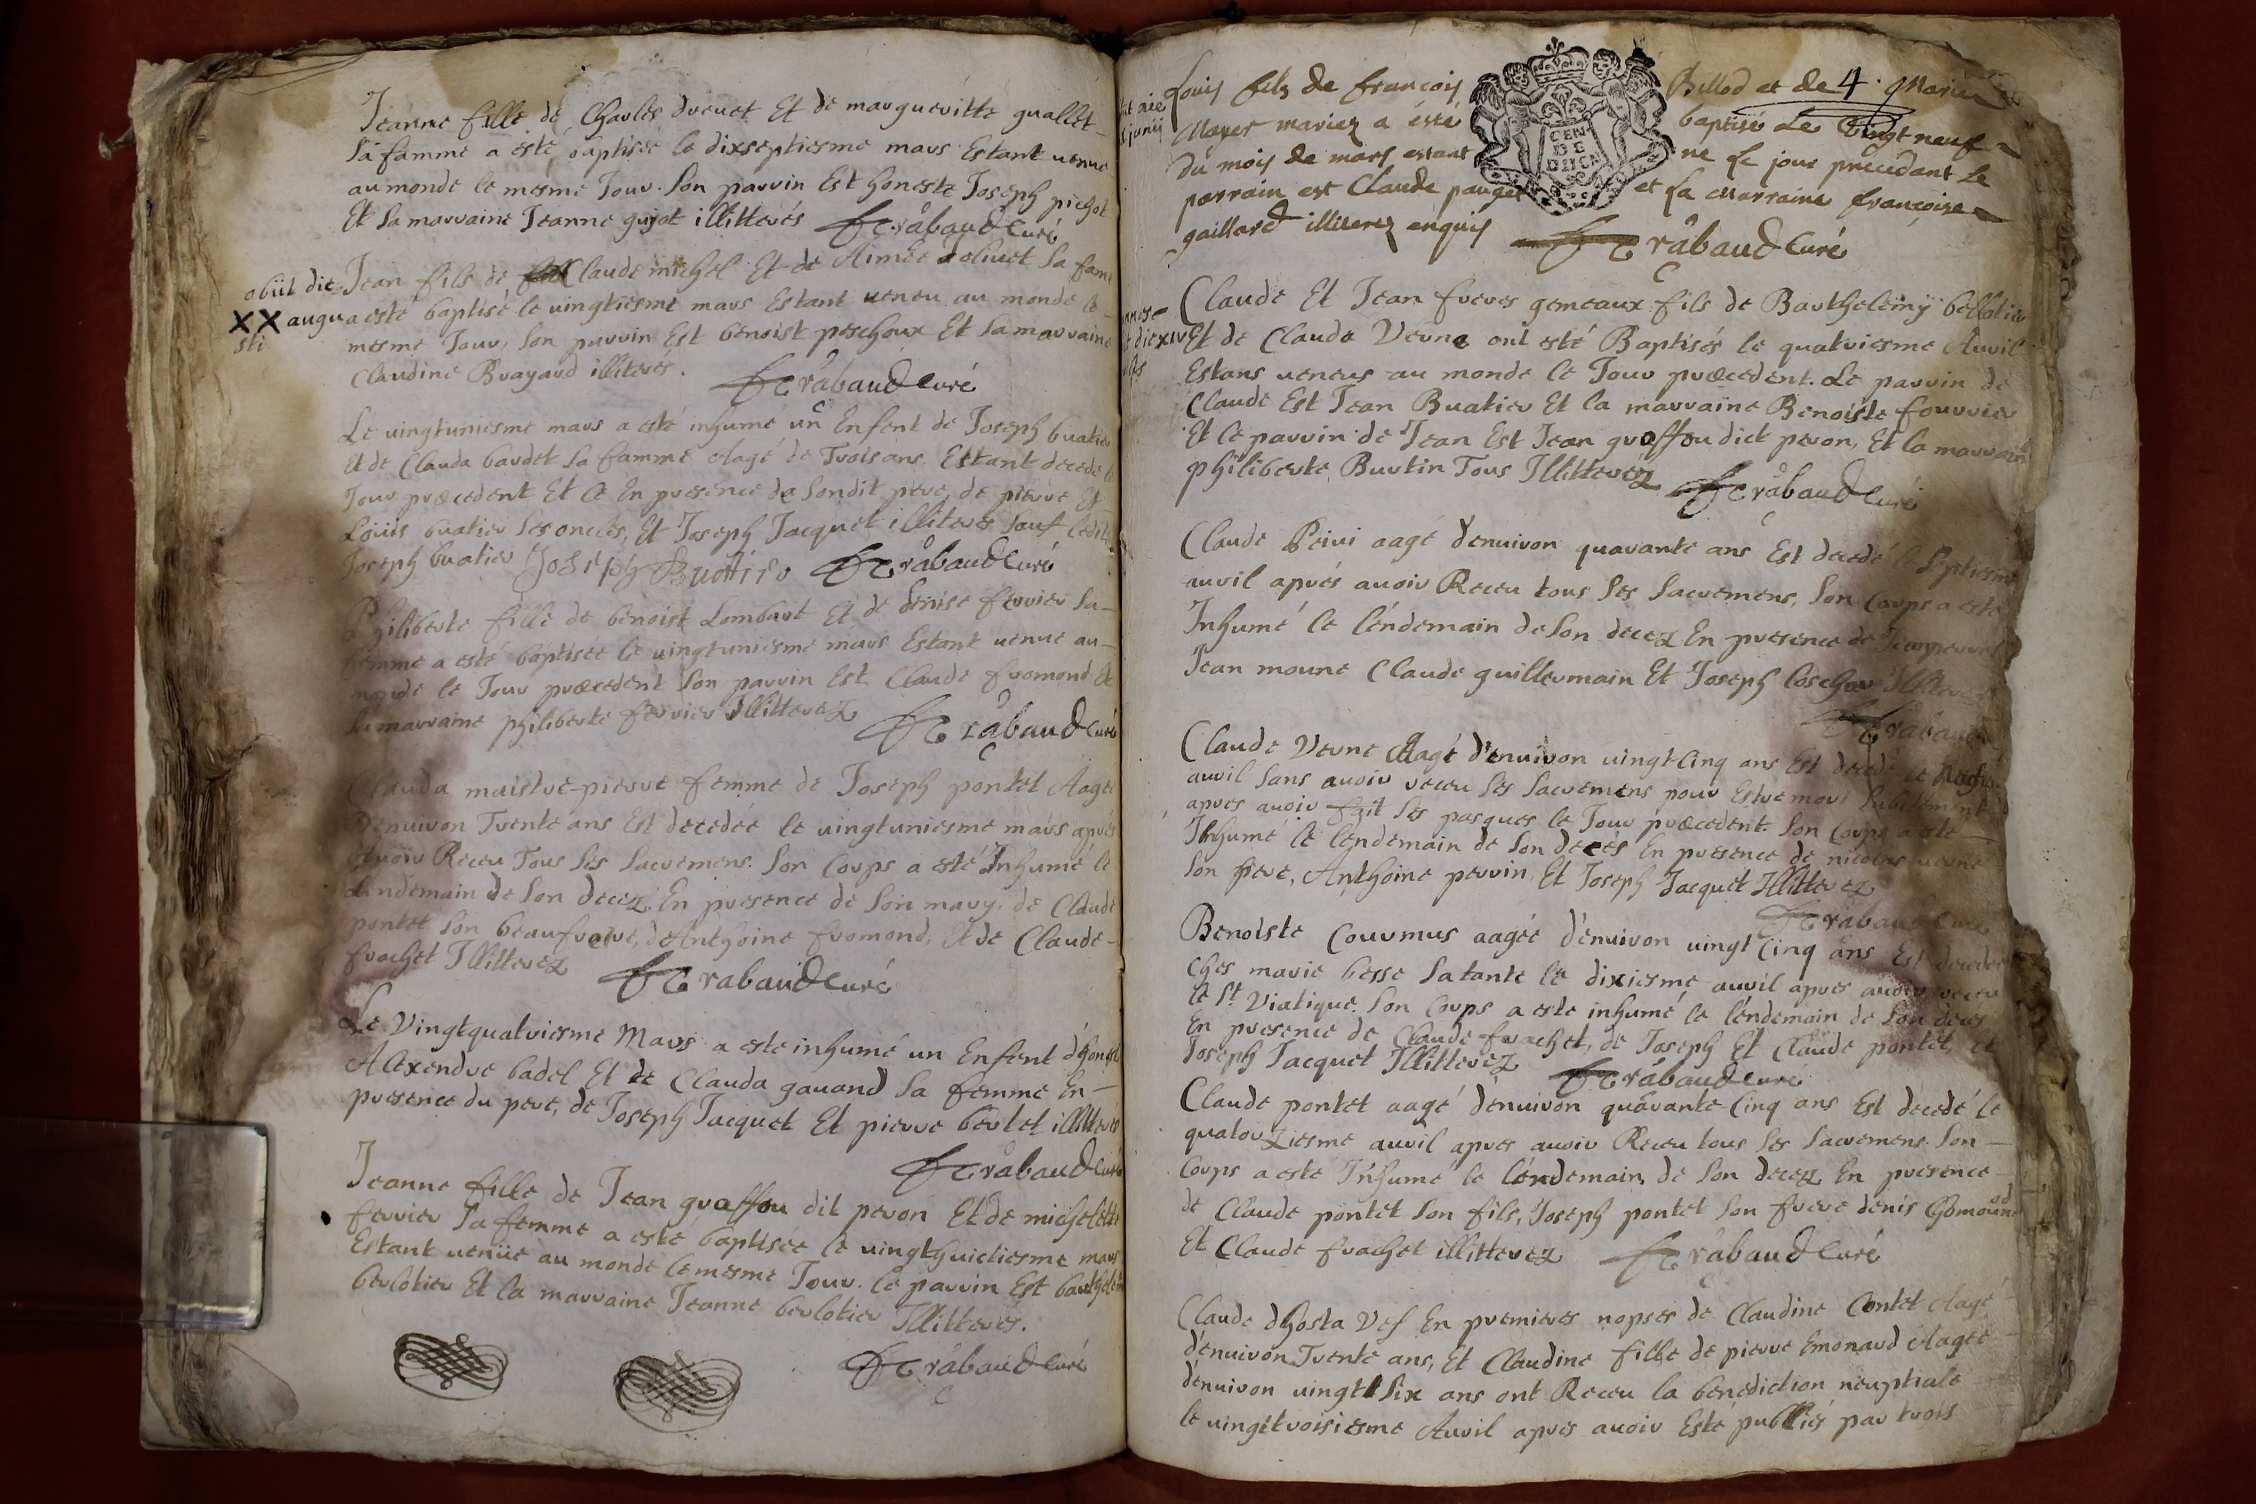 Jeanne fille de Charles dreuet Et de margueritte guallet
sa famme a esté baptisée le dixseptiesme mars Estant venue
au monde le mesme Jour. Son parrin Est honeste Joseph pichot
Et Sa marraine Jeanne guyot illitterés Trabaud Curé
obiit die Jean fils de Claude michel Et de Aimée Joliuet Sa fame
XX augu a esté baptisé le vingtiesme mars Estant veneu au monde le
sti mesme Jour, Son parrin Est benoist peschoux Et Sa marraine
Claudine Brayard illiterés. Trabaud Curé
Le vingtuniesme mars a esté inhumé un Enfent de Joseph buatier
Et de Clauda baudet Sa famme Aagé de Trois ans. Estant decedé le
Jour præcedent Et ce En presence de Sondit pere, de pierre Et
Loüis buatier Ses oncles, Et Joseph Jacquet illiterés Sauf ledit
Joseph buatier Joseph Buatiro Trabaud Curé
philiberte fille de benoist Lombart Et de denise ferrier Sa
femme a esté baptisée le vingtuniesme mars Estant venue au
monde le Jour præcedent Son parrin Est Claude fromond Et
La marraine philiberte ferrier Illitterez Trabaud Curé
Clauda maistre-pierre femme de Joseph pontet Aagée
D'enuiron Trente ans Est decedée le vingtuniesme mars aprés
Auoir Receu Tous Ses Sacremens. Son Corps a esté Inhumé le
Lendemain de Son decez. En presence de Son mary, de Claude
pontet Son beaufrere, de Anthoine fromond, Et de Claude
frachet Illitterez Trabaud Curé
Le Vingtquatriesme Mars a esté inhumé un Enfent d'honeste
Alexendre badel Et de Clauda gauand Sa femme En
presence du pere, de Joseph Jacquet Et pierre bertet illitteres
Trabaud Curé
Jeanne fille de Jean graffou dit peron Et de michelette
ferrier Sa femme a esté baptisée le vingthuictiesme mars
Estant venüe au monde le mesme Jour. le parrin Est barthelemy
berlotier Et la marraine Jeanne berlotier Illitterés.
Trabaud Curé
Louis fils de françois Billod et de 4. Marie
Mayer mariez a ésté baptisé Le Vingt neuf
junij
du mois de mars estant né Le jour precedant Le
GEN DE
parrain est Claude pauget et La marraine françoise
gaillard illiterez enquis Trabaud Curé
Claude Et Jean freres gemeaux fils de Barthelemÿ bellotier
die xiv Et de Clauda Verne ont esté Baptisés le quatriesme Auril
Estans veneus au monde le Jour præcedent. Le parrin de
Claude Est Jean Buatier Et la marraine Benoiste fourrier
Et le parrin de Jean Est Jean graffou dict peron, Et la marraine
philiberte Burtin Tous Illitterez Trabaud Curé
Claude Peiui aagé d'enuiron quarante ans Est decedé le Septiesme
auril aprés auoir Receu tous Ses Sacremens, Son Corps a esté
Inhumé le lendemain de Son decez En presence de
Jean moune Claude guillermain Et Joseph Illitterez
Trabaud
Claude Verne Aagé d'enuiron vingt-Cinq ans Est decedé le
auril Sans auoir receu Ses Sacremens pour Estre mort Subitement
apres auoir fait Ses pasques le Jour præcedent. Son Corps a esté
Inhumé le lendemain de Son decés En presence de nicolas verne
Son frere, Anthoine perrin Et Joseph Jacquet Illitterez
Trabaud Curé
Benoiste Courmus aagée d'enuiron vingt Cinq ans Est decedée
Ches marie besse Sa tante le dixiesme auril apres auoir receu
le St Viatique. Son Corps a esté inhumé le lendemain de Son deces
En presence de Claude frachet, de Joseph Et Claude pontet, et
Joseph Jacquet Illitterez Trabaud Curé
Claude pontet aagé d'enuiron quarante-Cinq ans Est decedé le
quatorziesme auril apres auoir Receu tous Ses Sacremens. Son
Corps a esté Inhumé le lendemain de Son decez En presence
de Claude pontet Son fils, Joseph pontet Son frere denis
Et Claude frachet illitterez Trabaud Curé
Claude dhosta Vef En premieres nopses de Claudine Contet Aagé
d'enuiron Trente ans, Et Claudine fille de pierre Emonard Aagée
d'enuiron vingt Six ans ont Receu la benediction neuptiale
le vingttroisiesme Auril apres auoir Esté publiés par trois